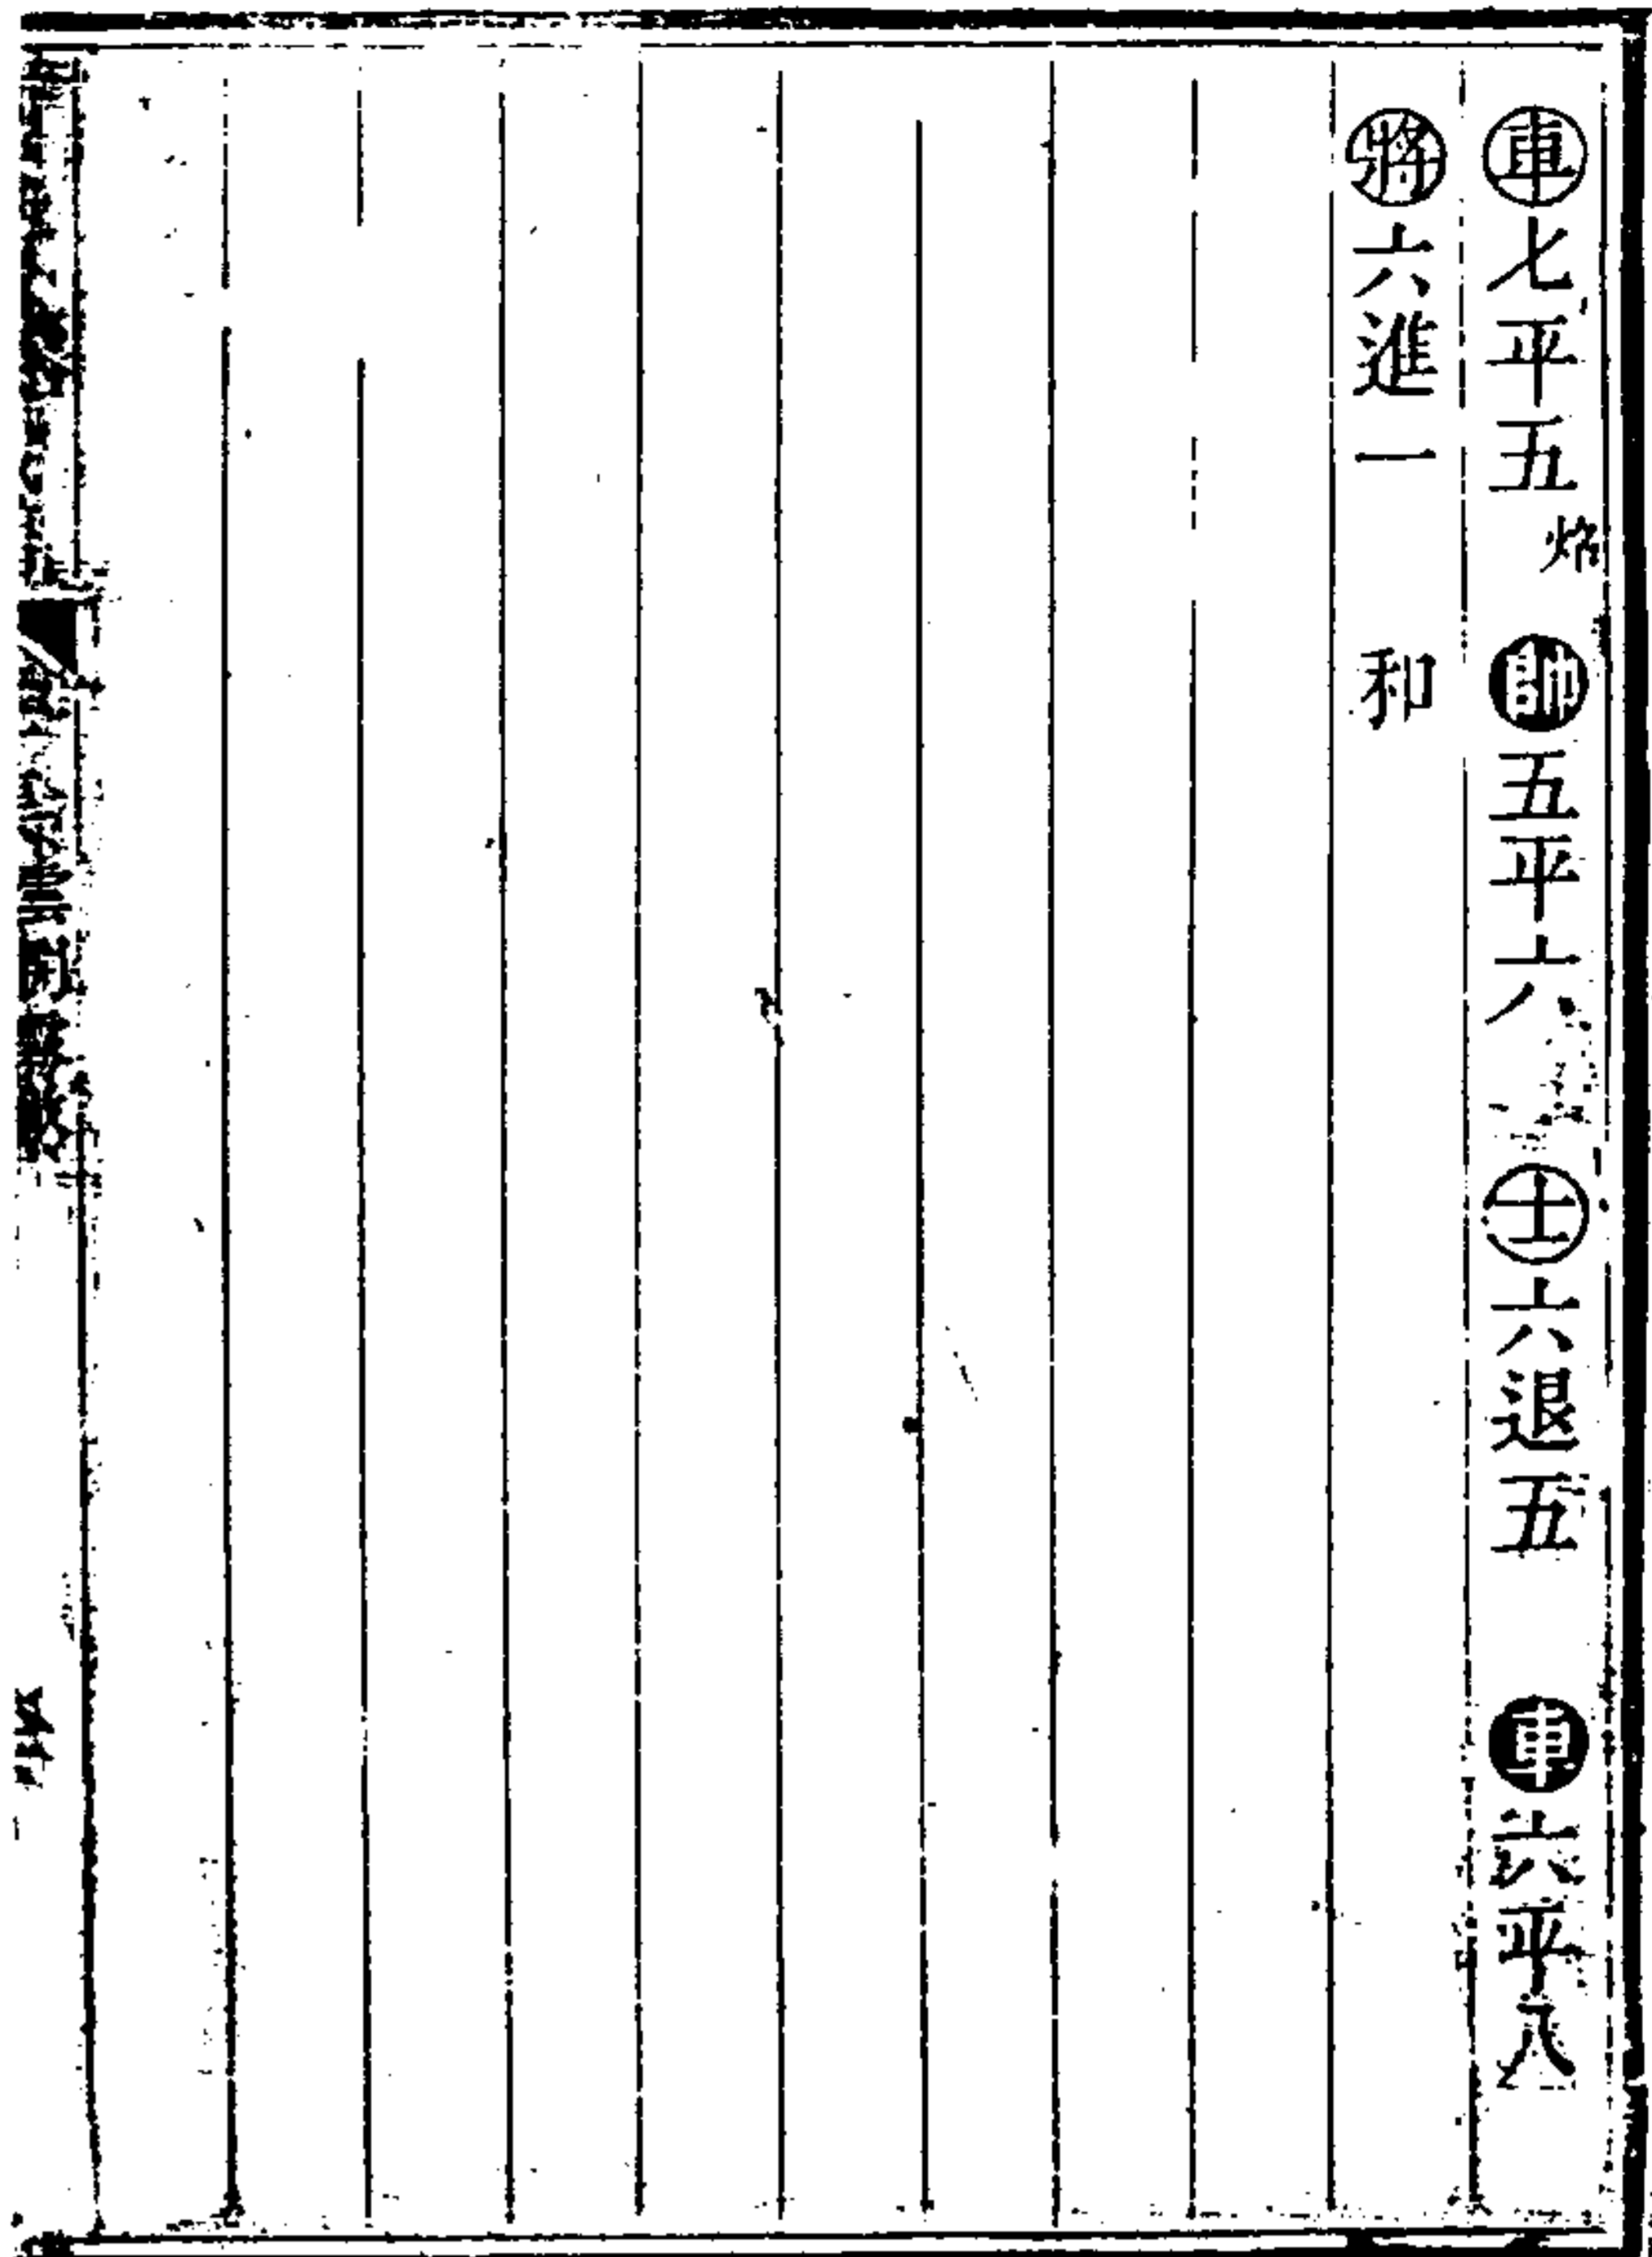 車七平五 㷔 帥五平六 士六退五 車六平八
將六進一 和